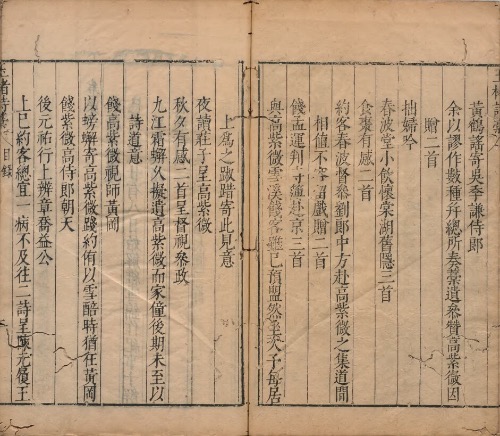 黃鶴謠寄吳季謙侍郎
余以謬作數種并總所奏藁遺參贊高紫微因
贈二首
拙婦吟
春波堂小飲懷棠湖舊隱三首
食棗有感二首
約客春波督參劉郎中方赴高紫微之集道間
相值不容留戲贈二首
餞孟運判赴京三首
與高紫微雪溪餞客雖已預盟然至夫人子每居
上爲之踧踖寄此見意
夜讀莊子呈高紫微
秋夕有感二首呈督視參政
九江霜蠏久擬遺高紫微而家僮後期未至以
詩道意
餞高紫微視師黃岡
以螃蠏寄高紫微踐約侑以雪醅時猶在黃岡
餞紫微高侍郎朝天
後元祐行上辨章喬益公
上巳約客總宜一病不及往二詩呈陳元履王
目錄